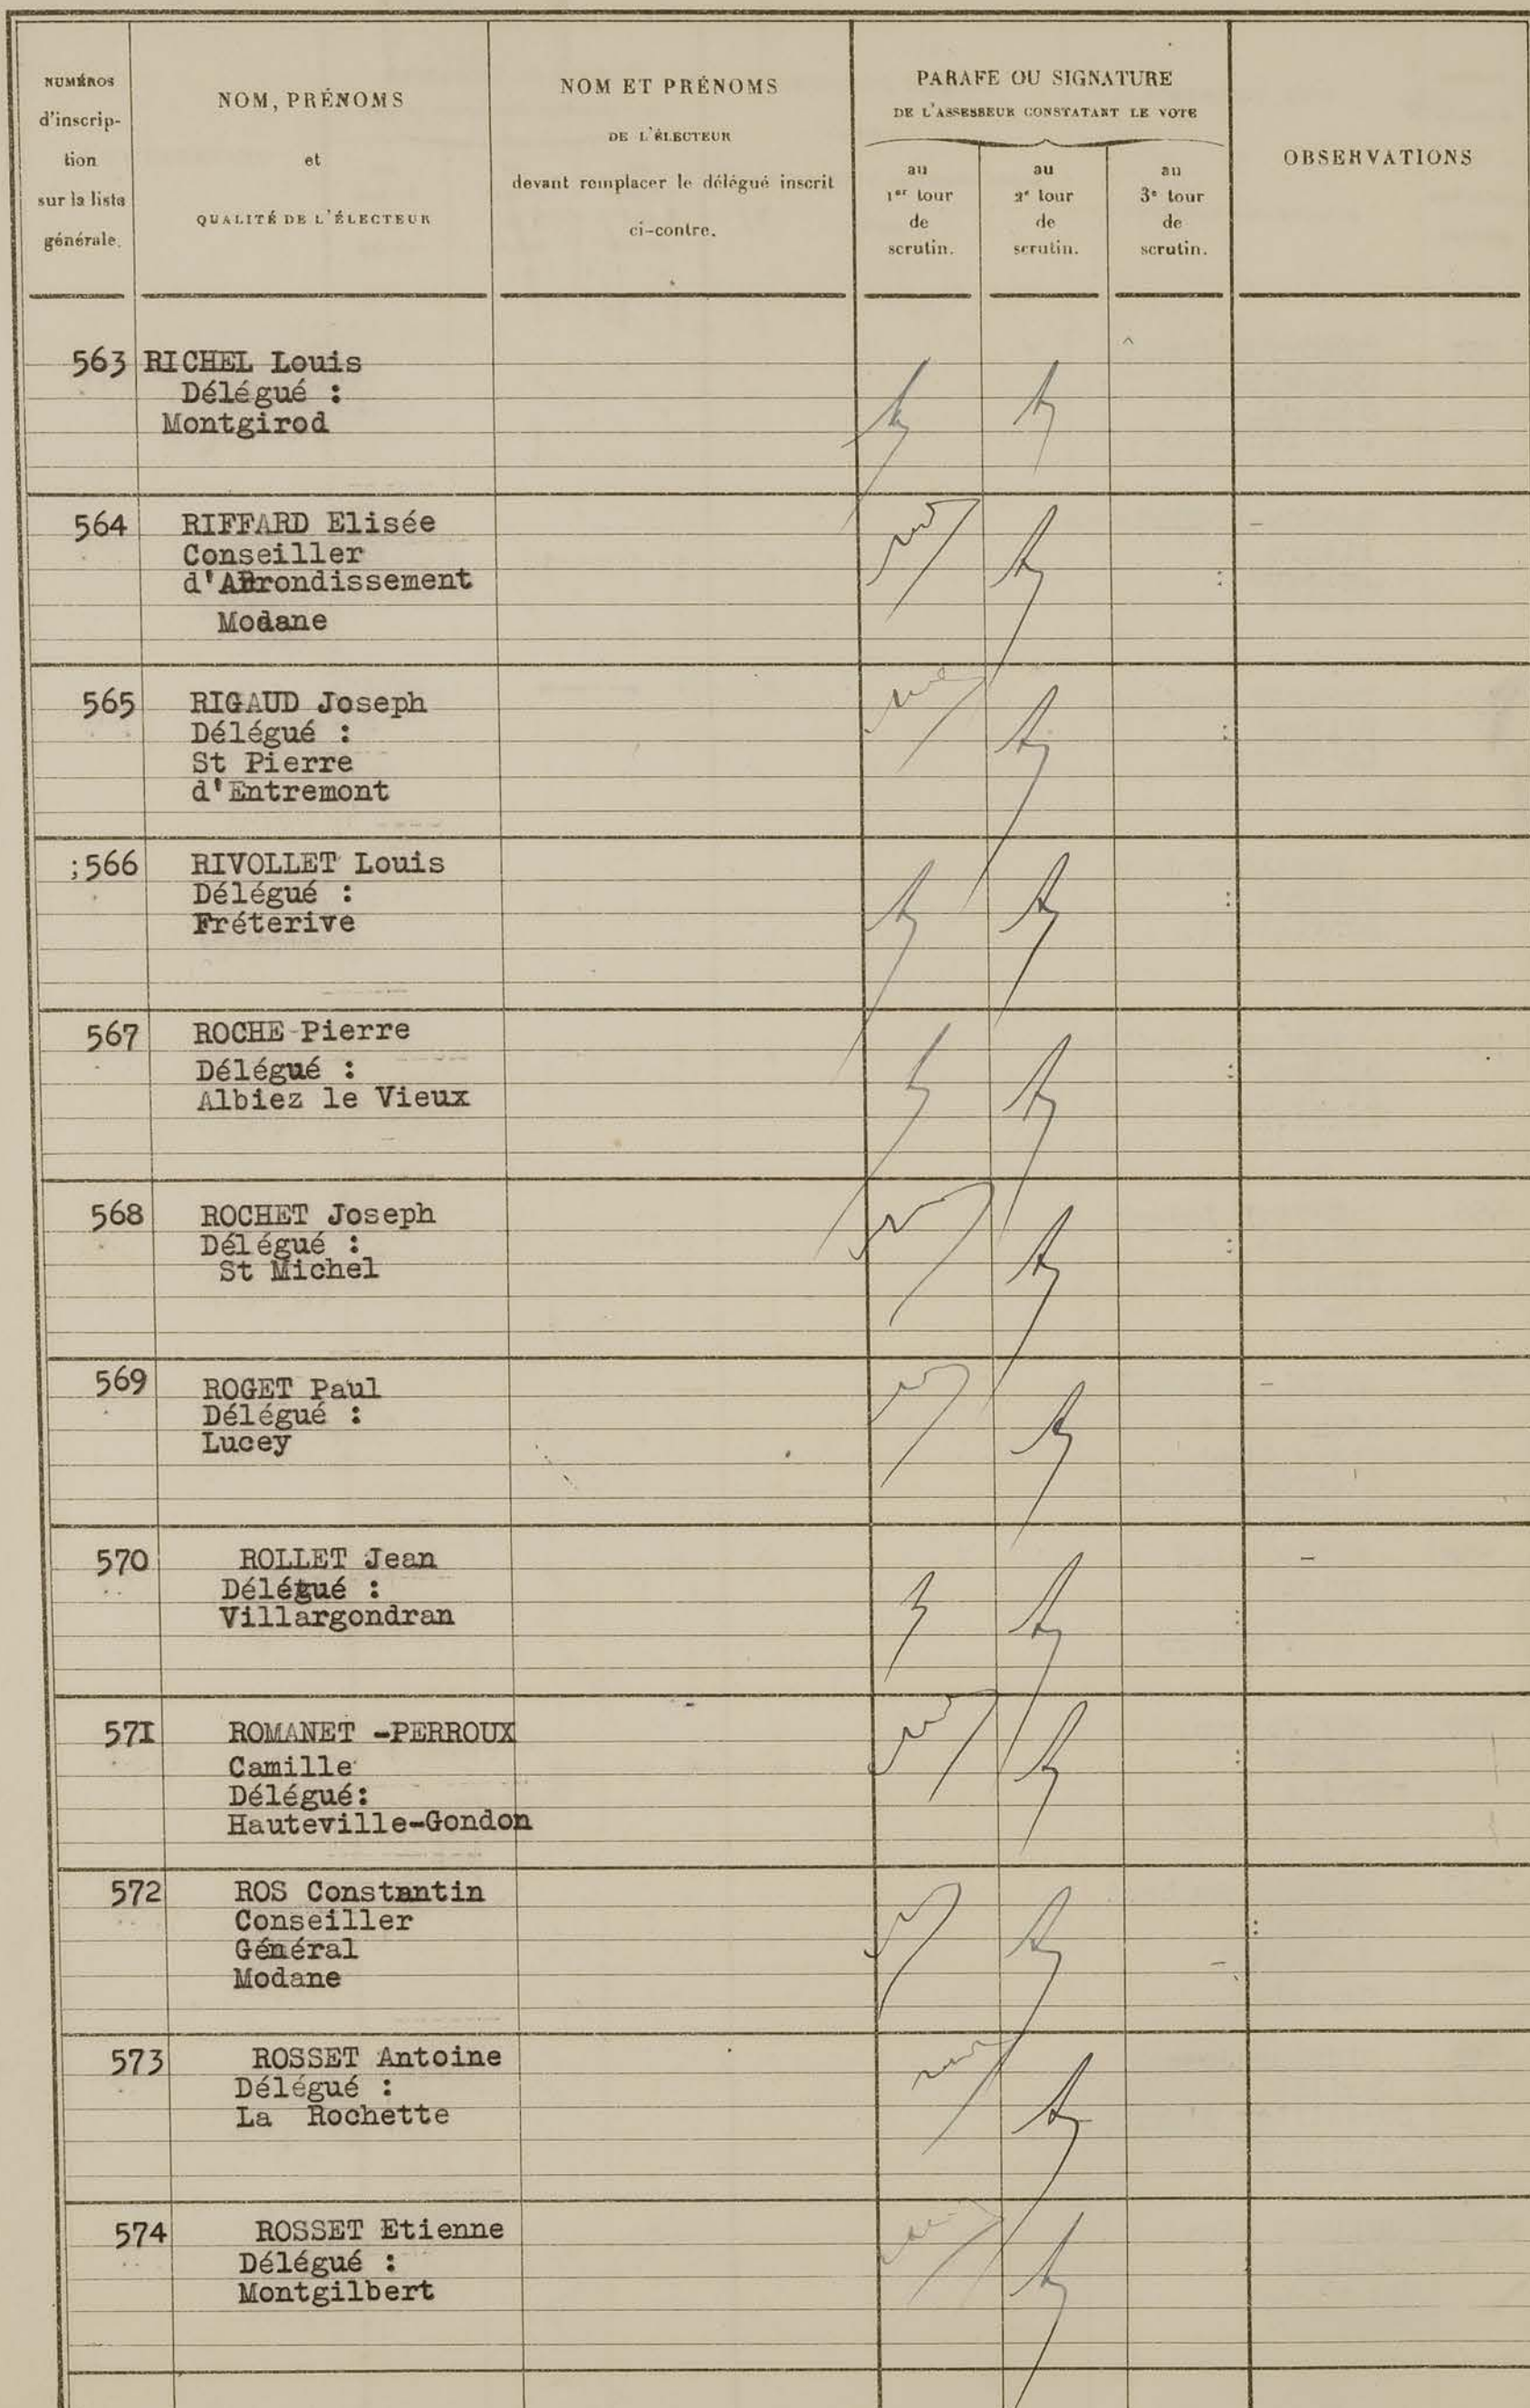 NUMÉROS
d'inscrip-
tion
sur la liste
générale.
NOM, PRÉNOMS
et
QUALITÉ DE L'ÉLECTEUR
NOM ET PRÉNOMS
DE L'ÉLECTEUR
devant remplacer le délégué inscrit
ci-contre.
PARAFE OU SIGNATURE
DE L'ASSESSEUR CONSTATANT LE VOTE
au
1er tour
de
scrutin.
au
2e tour
de
scrutin.
au
3e tour
de
scrutin.
OBSERVATIONS
563 RICHEL Louis
Délégué :
Montgirod
564 RIFFARD Elisée
Conseiller
d'Arrondissement
Modane
565 RIGAUD Joseph
Délégué :
St Pierre
d'Entremont
;566 RIVOLLET Louis
Délégué :
Fréterive
567 ROCHE Pierre
Délégué :
Albiez le Vieux
568 ROCHET Joseph
Délégué :
St Michel
569 ROGET Paul
Délégué :
Lucey
570 ROLLET Jean
Délégué :
Villargondran
57I ROMANET -PERROUX
Camille
Délégué:
Hauteville-Gondon
572 ROS Constantin
Conseiller
Général
Modane
573 ROSSET Antoine
Délégué :
La Rochette
574 ROSSET Etienne
Délégué :
Montgilbert